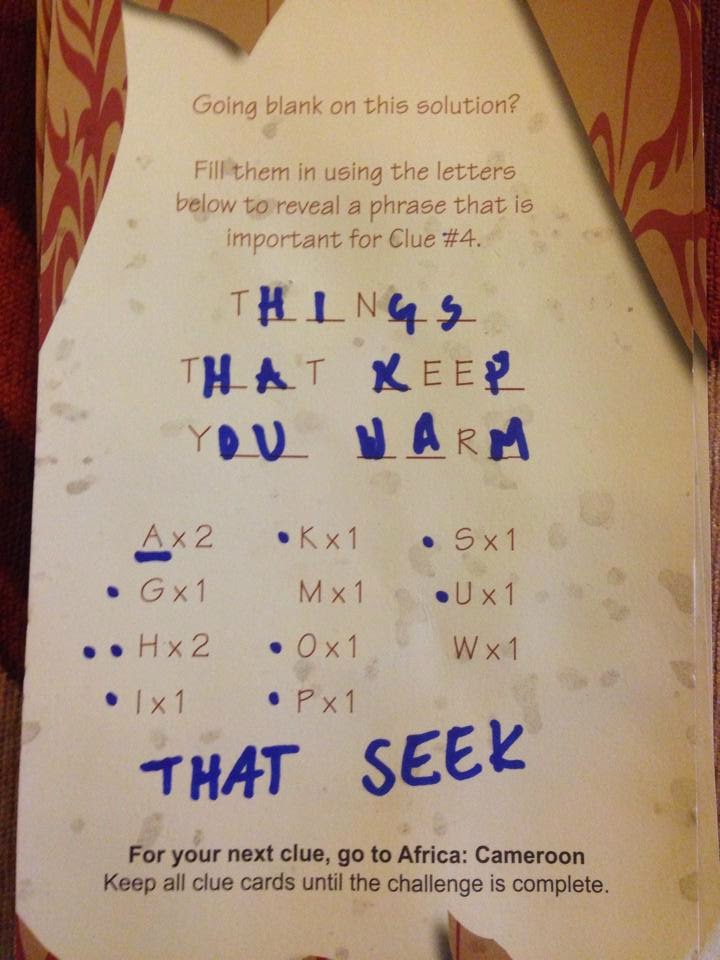 Going blank on this solution?
Fill them in using the letters
below to reveal a phrase that is
important for Clue #4.
THINGS
THAT KEEP
YOU WARM
A x 2 K x 1 S x 1
G x 1 M x 1 U x 1
H x 2 O x 1 W x 1
I x 1 P x 1
THAT SEEK
For your next clue, go to Africa: Cameroon
Keep all clue cards until the challenge is complete.